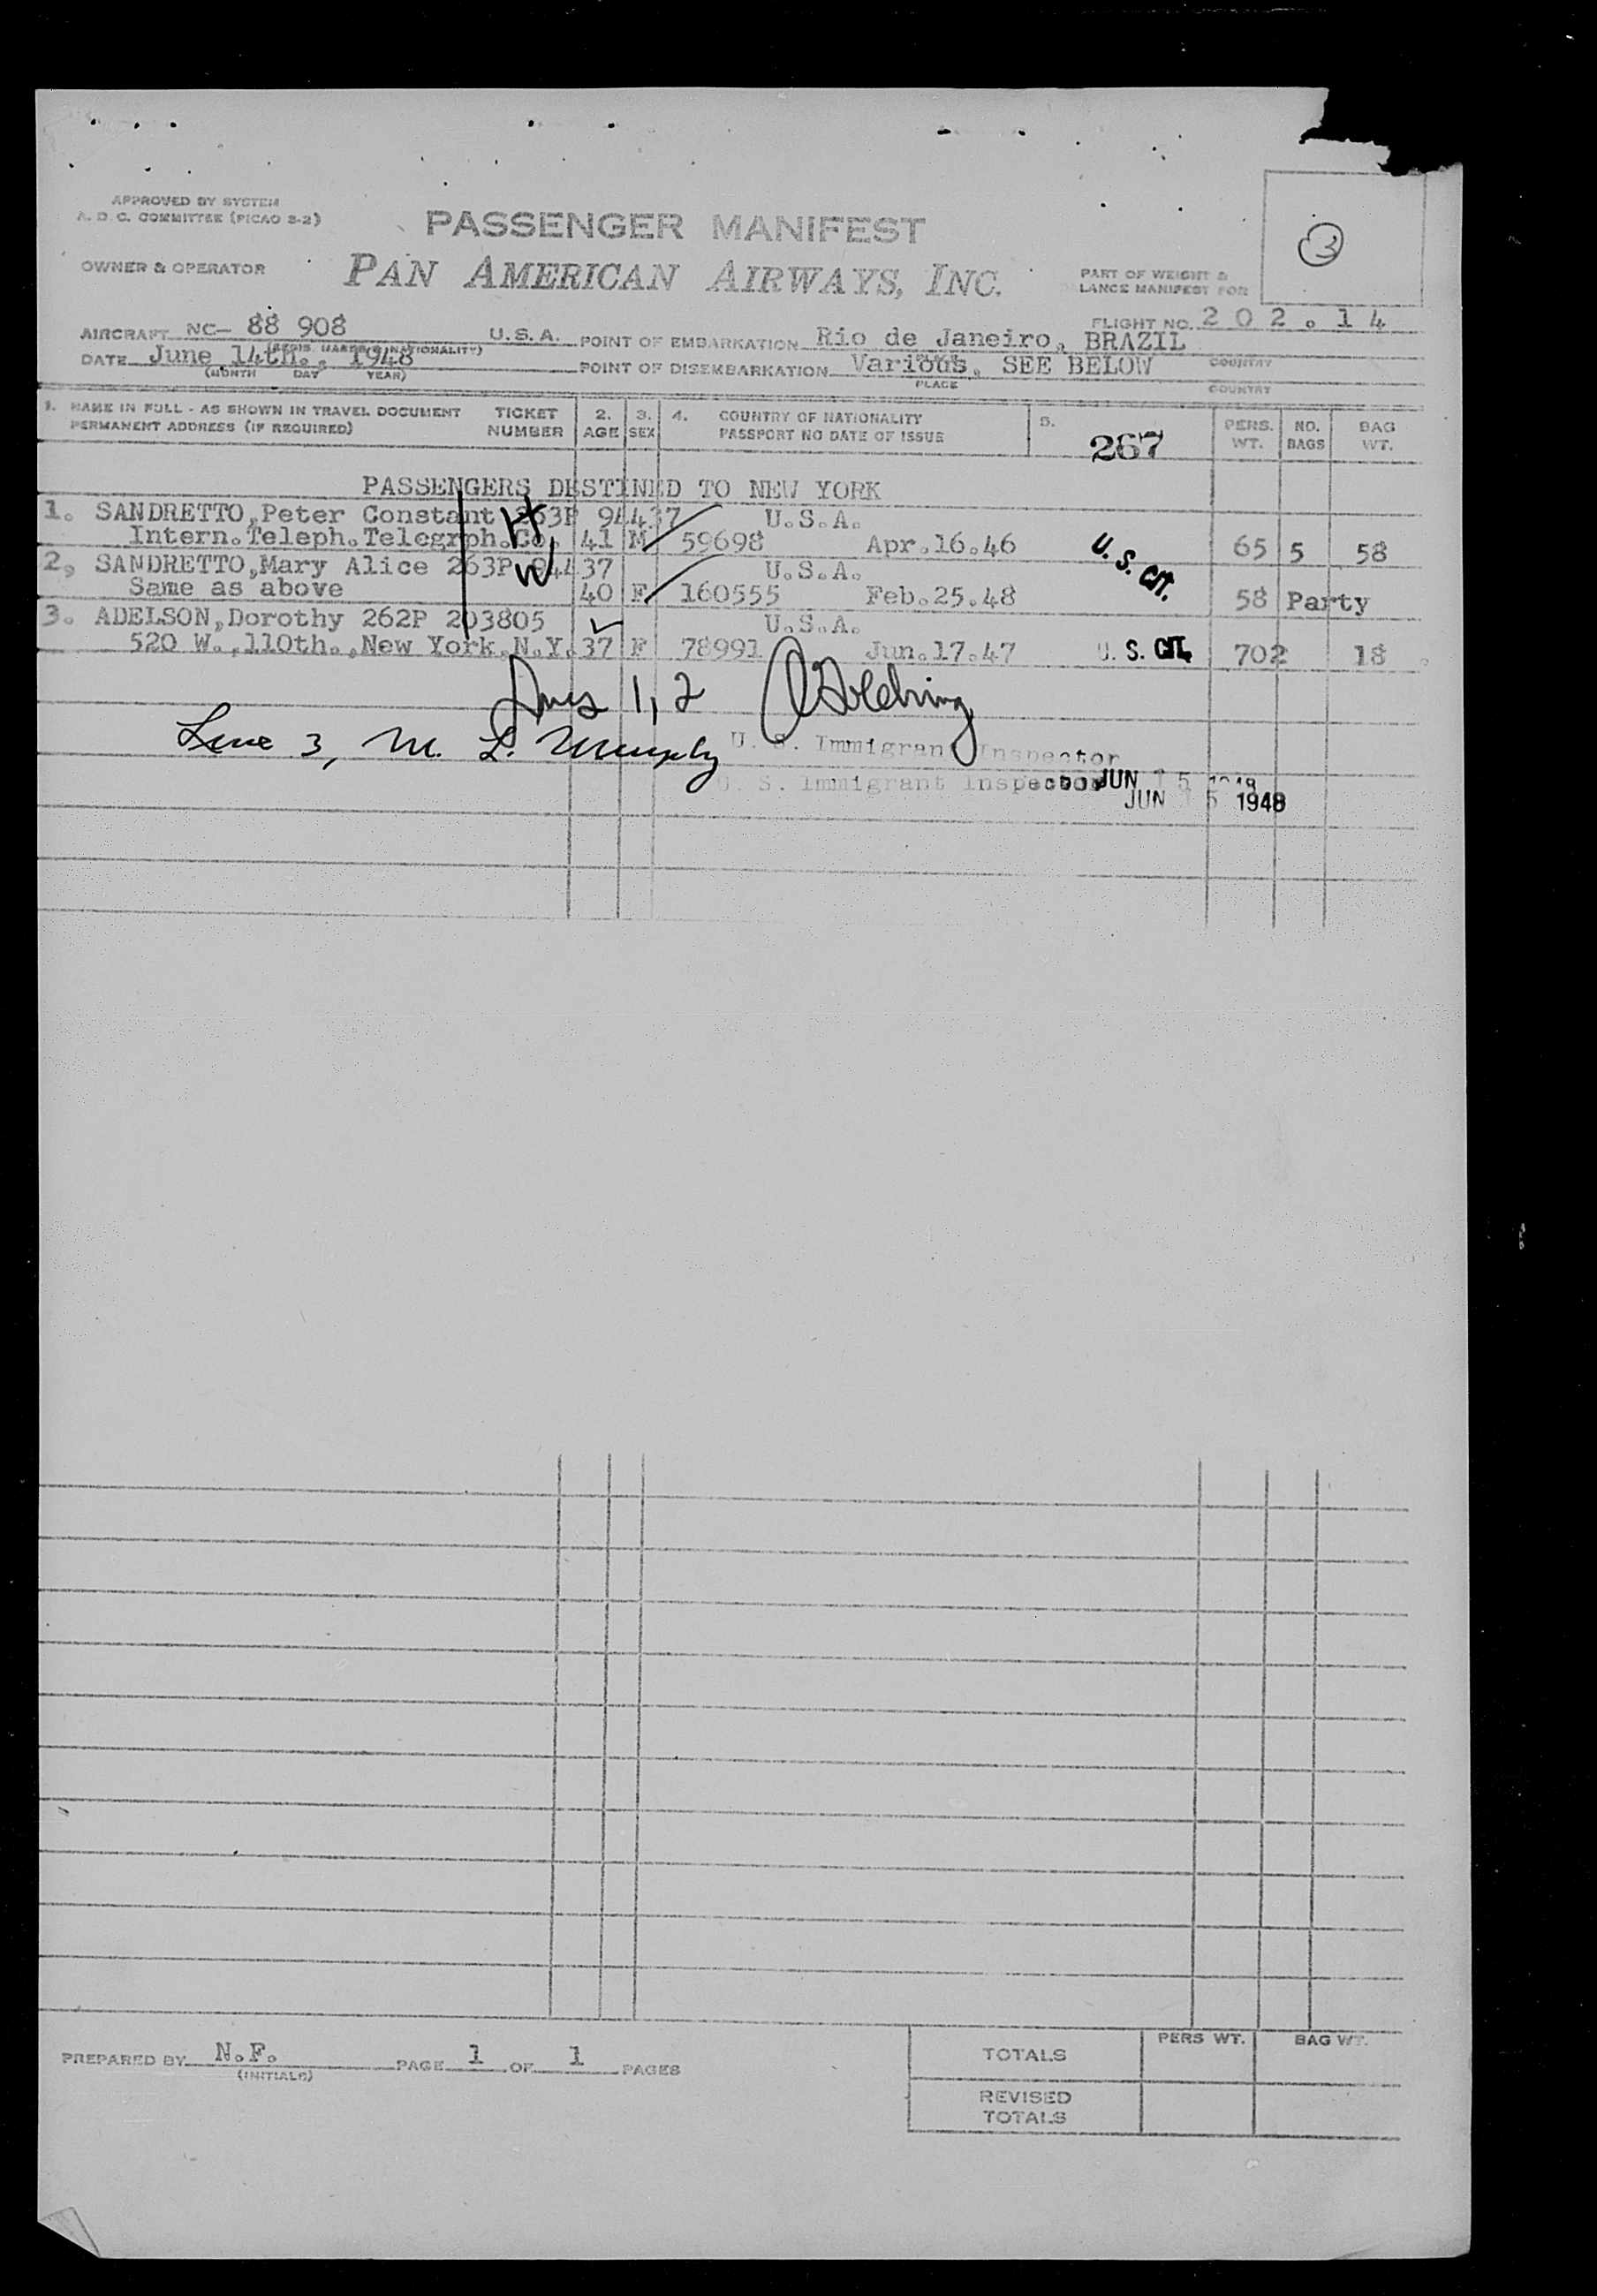 APPROVED BY SYSTEM
A. D. C. COMMITTEE (PICAO S-2)
PASSENGER MANIFEST
3
OWNER & OPERATOR
PAN AMERICAN AIRWAYS, INC.
PART OF WEIGHT &
LANCE MANIFEST FOR
FLIGHT NO. 202.14
AIRCRAFT NC- 88 908 U.S.A. POINT OF EMBARKATION Rio de Janeiro, BRAZIL
(REGIS. MARKS & NATIONALITY) PLACE COUNTRY
DATE June 14th., 1948 POINT OF DISEMBARKATION Various, SEE BELOW
(MONTH DAY YEAR) PLACE COUNTRY
1. NAME IN FULL - AS SHOWN IN TRAVEL DOCUMENT TICKET 2. 3. 4. COUNTRY OF NATIONALITY 5. PERS. NO. BAG
PERMANENT ADDRESS (IF REQUIRED) NUMBER AGE SEX PASSPORT NO DATE OF ISSUE 267 WT. BAGS WT.
PASSENGERS DESTINED TO NEW YORK
1. SANDRETTO,Peter Constant 263P 94437 U.S.A.
H
Intern.Teleph.Telegrph.Co. 41 M 59698 Apr.16.46 65 5 58
U. S. CIT.
2, SANDRETTO,Mary Alice 263P 94437 U.S.A.
W
Same as above 40 F 160555 Feb.25.48 58 Party
3. ADELSON,Dorothy 262P 203805 U.S.A.
520 W.,110th.,New York,N.Y. 37 F 78991 Jun.17.47 U. S. CIT. 702 18
1, 2
Line 3, M. L. Murphy
U. S. Immigrant Inspector
U. S. Immigrant Inspector JUN 15 1948
JUN 15 1948
PREPARED BY N.F. PAGE 1 OF 1 PAGES
(INITIALS)
PERS WT. BAG WT.
TOTALS
REVISED
TOTALS